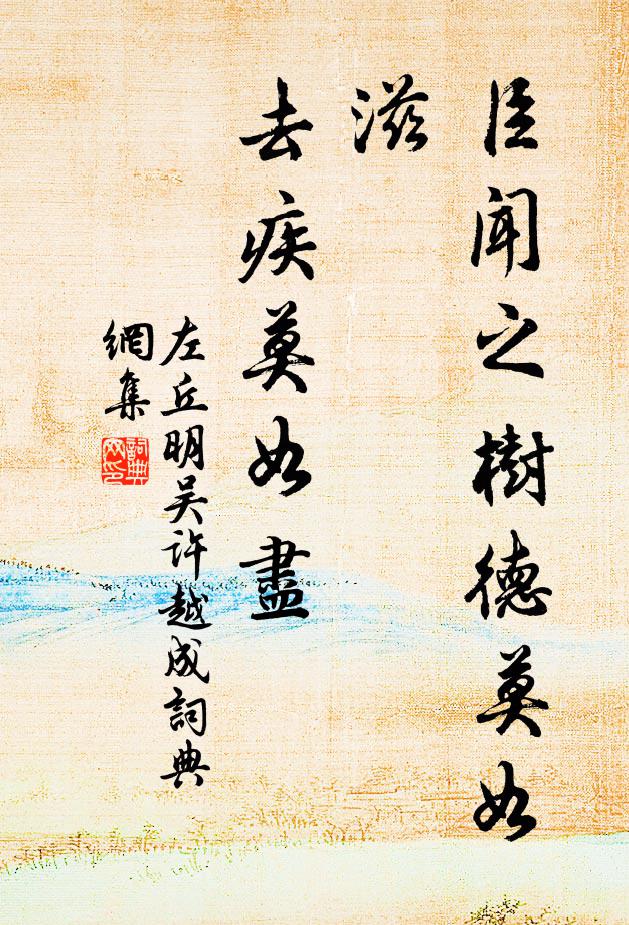 臣聞之樹德莫如
滋
去疾莫如盡
左丘明吴许越成詞典
網集
詞典
网印